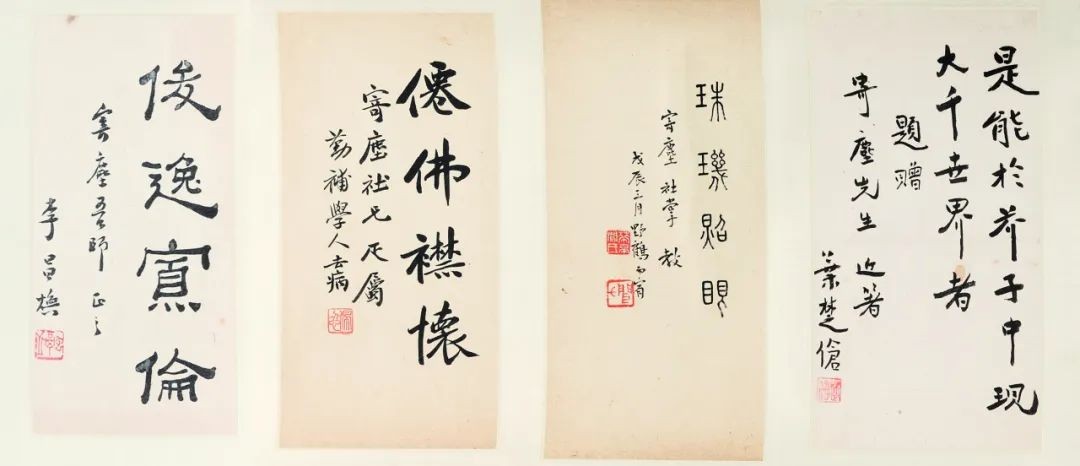 是能於芥子中现
大千世界者
題贈
寄塵先生 近著
葉楚傖
珠璣照眼
寄塵 社掌 教
戊辰三月 野鶴聞宥
僊佛襟懷
寄塵社兄正屬
勤補學人去病
俊逸寡倫
寄塵吾師 正之
李昌